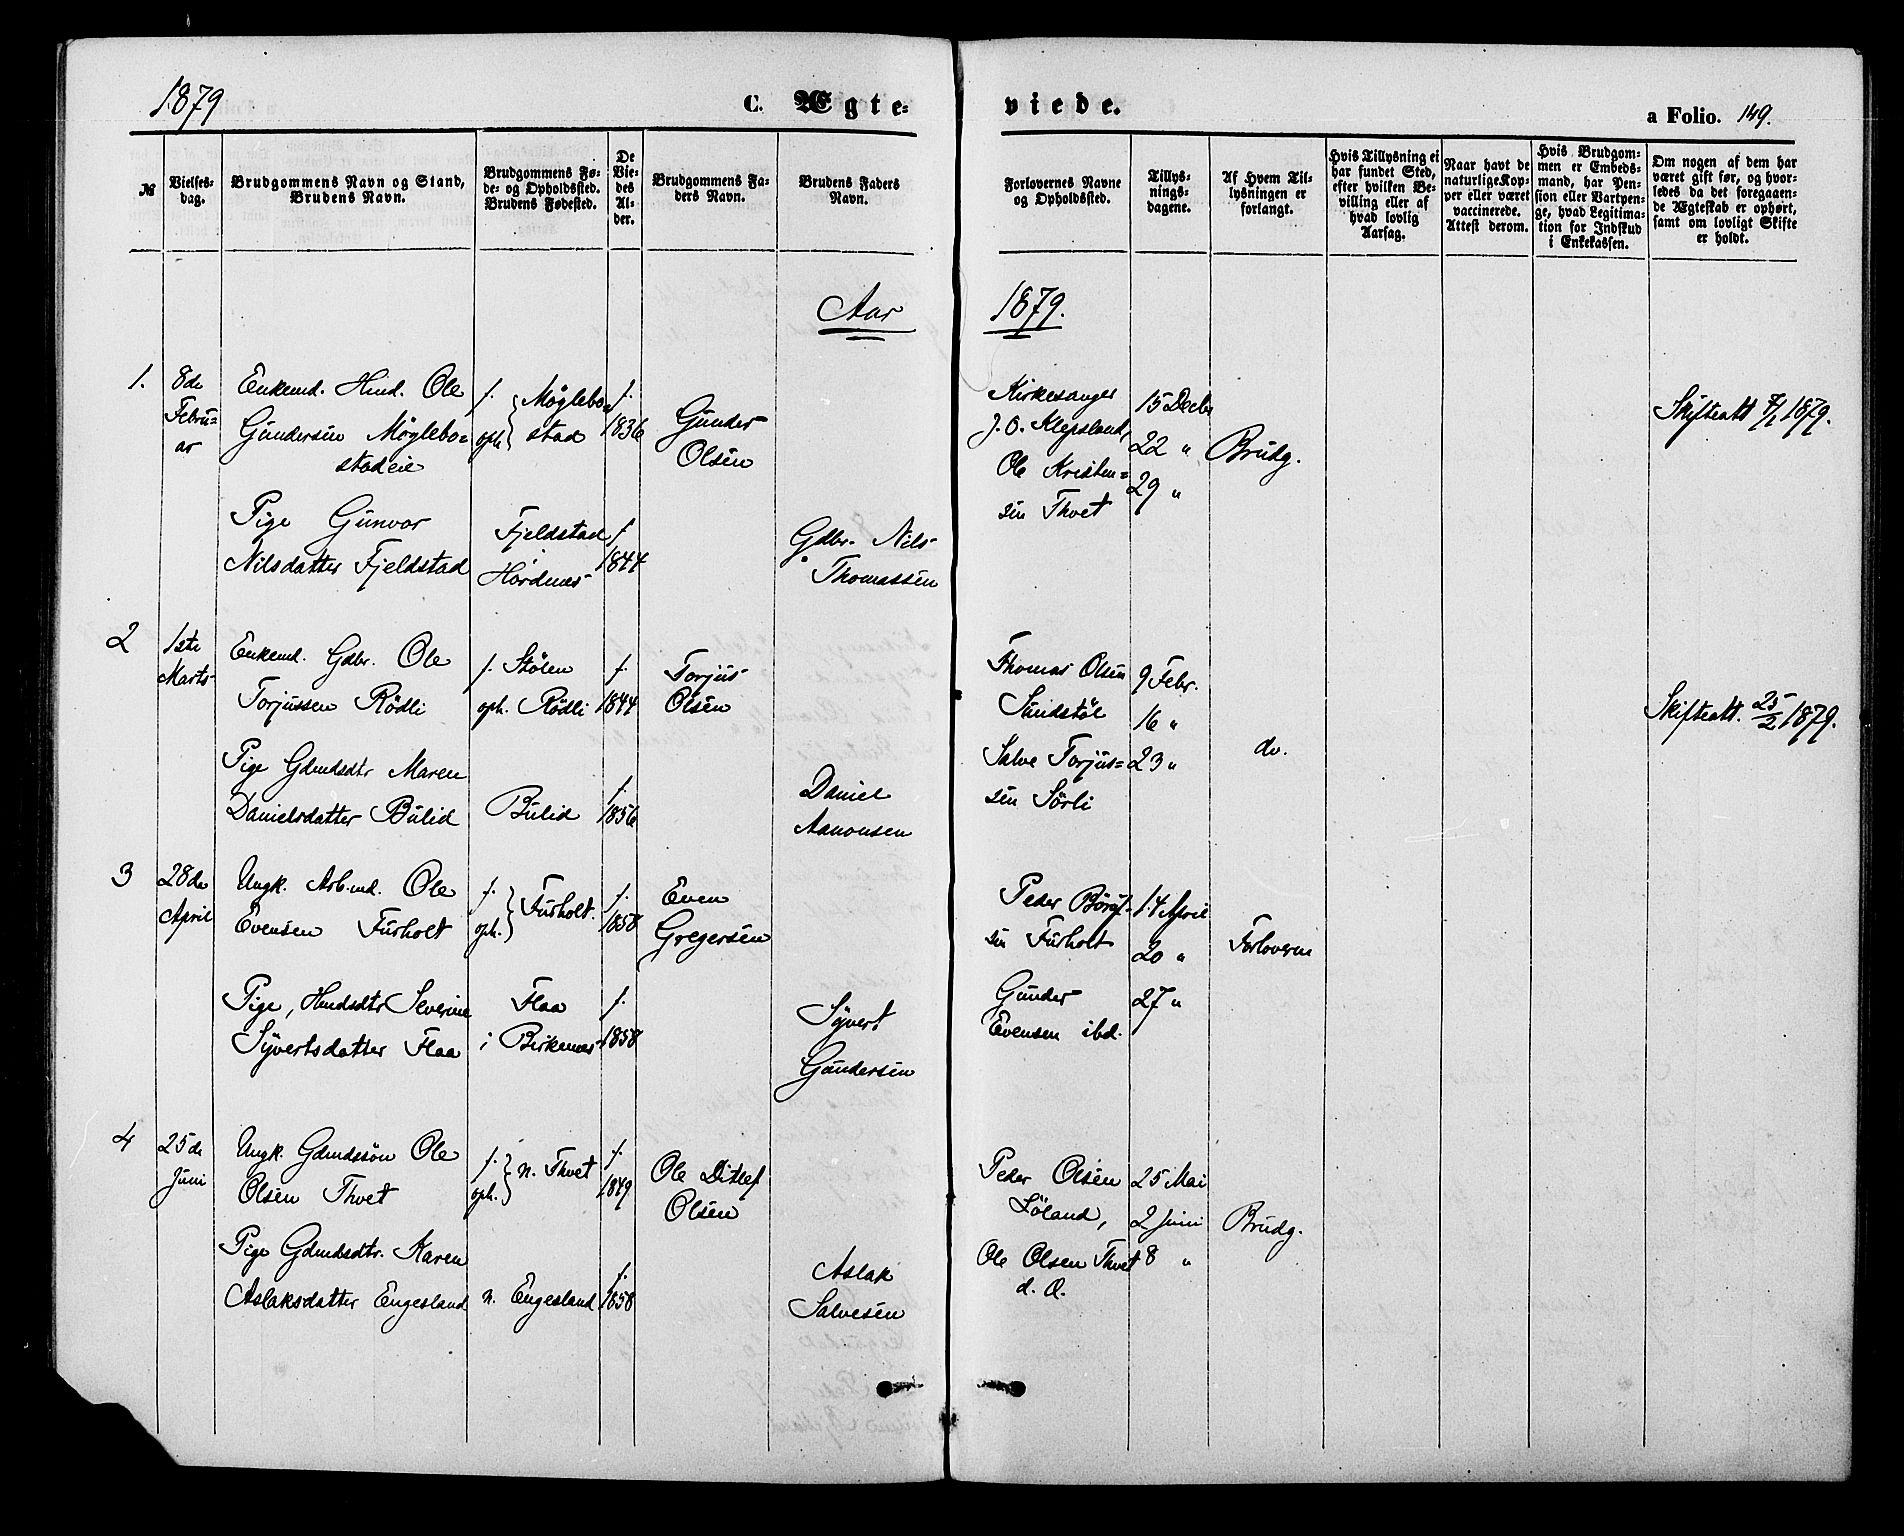 1879
C. Ægte=
viede.
a Folio. 149.
№
Vielses-
dag.
Brudgommens Navn og Stand,
Brudens Navn.
Brudgommens Fø-
de- og Opholdssted.
Brudens Fødested.
De
Vie-
des
Al-
der.
Brudgommens Fa-
ders Navn.
Brudens Faders
Navn.
Forlovernes Navne
og Opholdssted.
Tillys-
nings-
dagene.
Af Hvem Til-
lysningen er
forlangt.
Hvis Tillysning ei
har fundet Sted,
efter hvilken Be-
villing eller af
hvad lovlig
Aarsag.
Naar havt de
naturlige Kop-
per eller været
vaccinerede.
Attest derom.
Hvis Brudgom-
men er Embeds-
mand, har Pen-
sion eller Vartpen-
ge, hvad Legitima-
tion for Indskud
i Enkekassen.
Om nogen af dem har
været gift før, og hvor-
ledes da det foregaaen-
de Ægteskab er ophørt,
samt om lovligt Skifte
er holdt.
Aar
1879.
1.
8de
Febru=
ar
Enkemd. Hmd. Ole
Gundersen Møglebo=
stadeie
f.
oph.
Møglebo
stad
f.
1836
Gunder
Olsen
Kirkesanger
J. O. Klepsland,
Ole Kristen=
sen Thvet
15 Decbr
22 "
29 "
Brudg.
Skifteatt 1879.
Pige Gunvor
Nilsdatter Fjeldstad
Fjeldstad
i
Hordnes
f
1844
Gdbr. Nils
Thomassen
2
1ste
Marts
Enkemd. Gdbr. Ole
Torjussen Rödli
f. Stölen
oph. Rödli
f.
1844
Torjus
Olsen
Thomas Olsen
Sundstöl
Salve Torjus=
sen Sörli
9 Febr.
16 "
23 "
do.
Skifteatt. 25/2 1879.
Pige Gdmdsdtr Maren
Danielsdatter Bulid
Bulid
f.
1856
Daniel
Aanonsen
3
28de
April
Ungk. Arb.md. Ole
Evensen Furholt
f.
oph.
Furholt.
f.
1858
Even
Gregersen
Peder Böruf-
sen Furholt
Gunder
Evensen ibd.
14 April
20 "
27 "
Forloverne
Pige, Hmdsdtr Severine
Syvertsdatter Flaa
Flaa
i Birkenes
f.
1858
Syvert
Gundersen
4
25de
Juni
Ungk. Gdmdssön Ole
Olsen Thvet
f.
oph.
n. Thvet
f.
1849
Ole Ditlef
Olsen
Peder Olsen
Löland,
Ole Olsen Thvet
d. O.
25 Mai
2 Juni
8 "
Brudg.
Pige Gdmdsdtr. Karen
Aslaksdatter Engesland
n. Engesland
f.
1858
Aslak
Salvesen